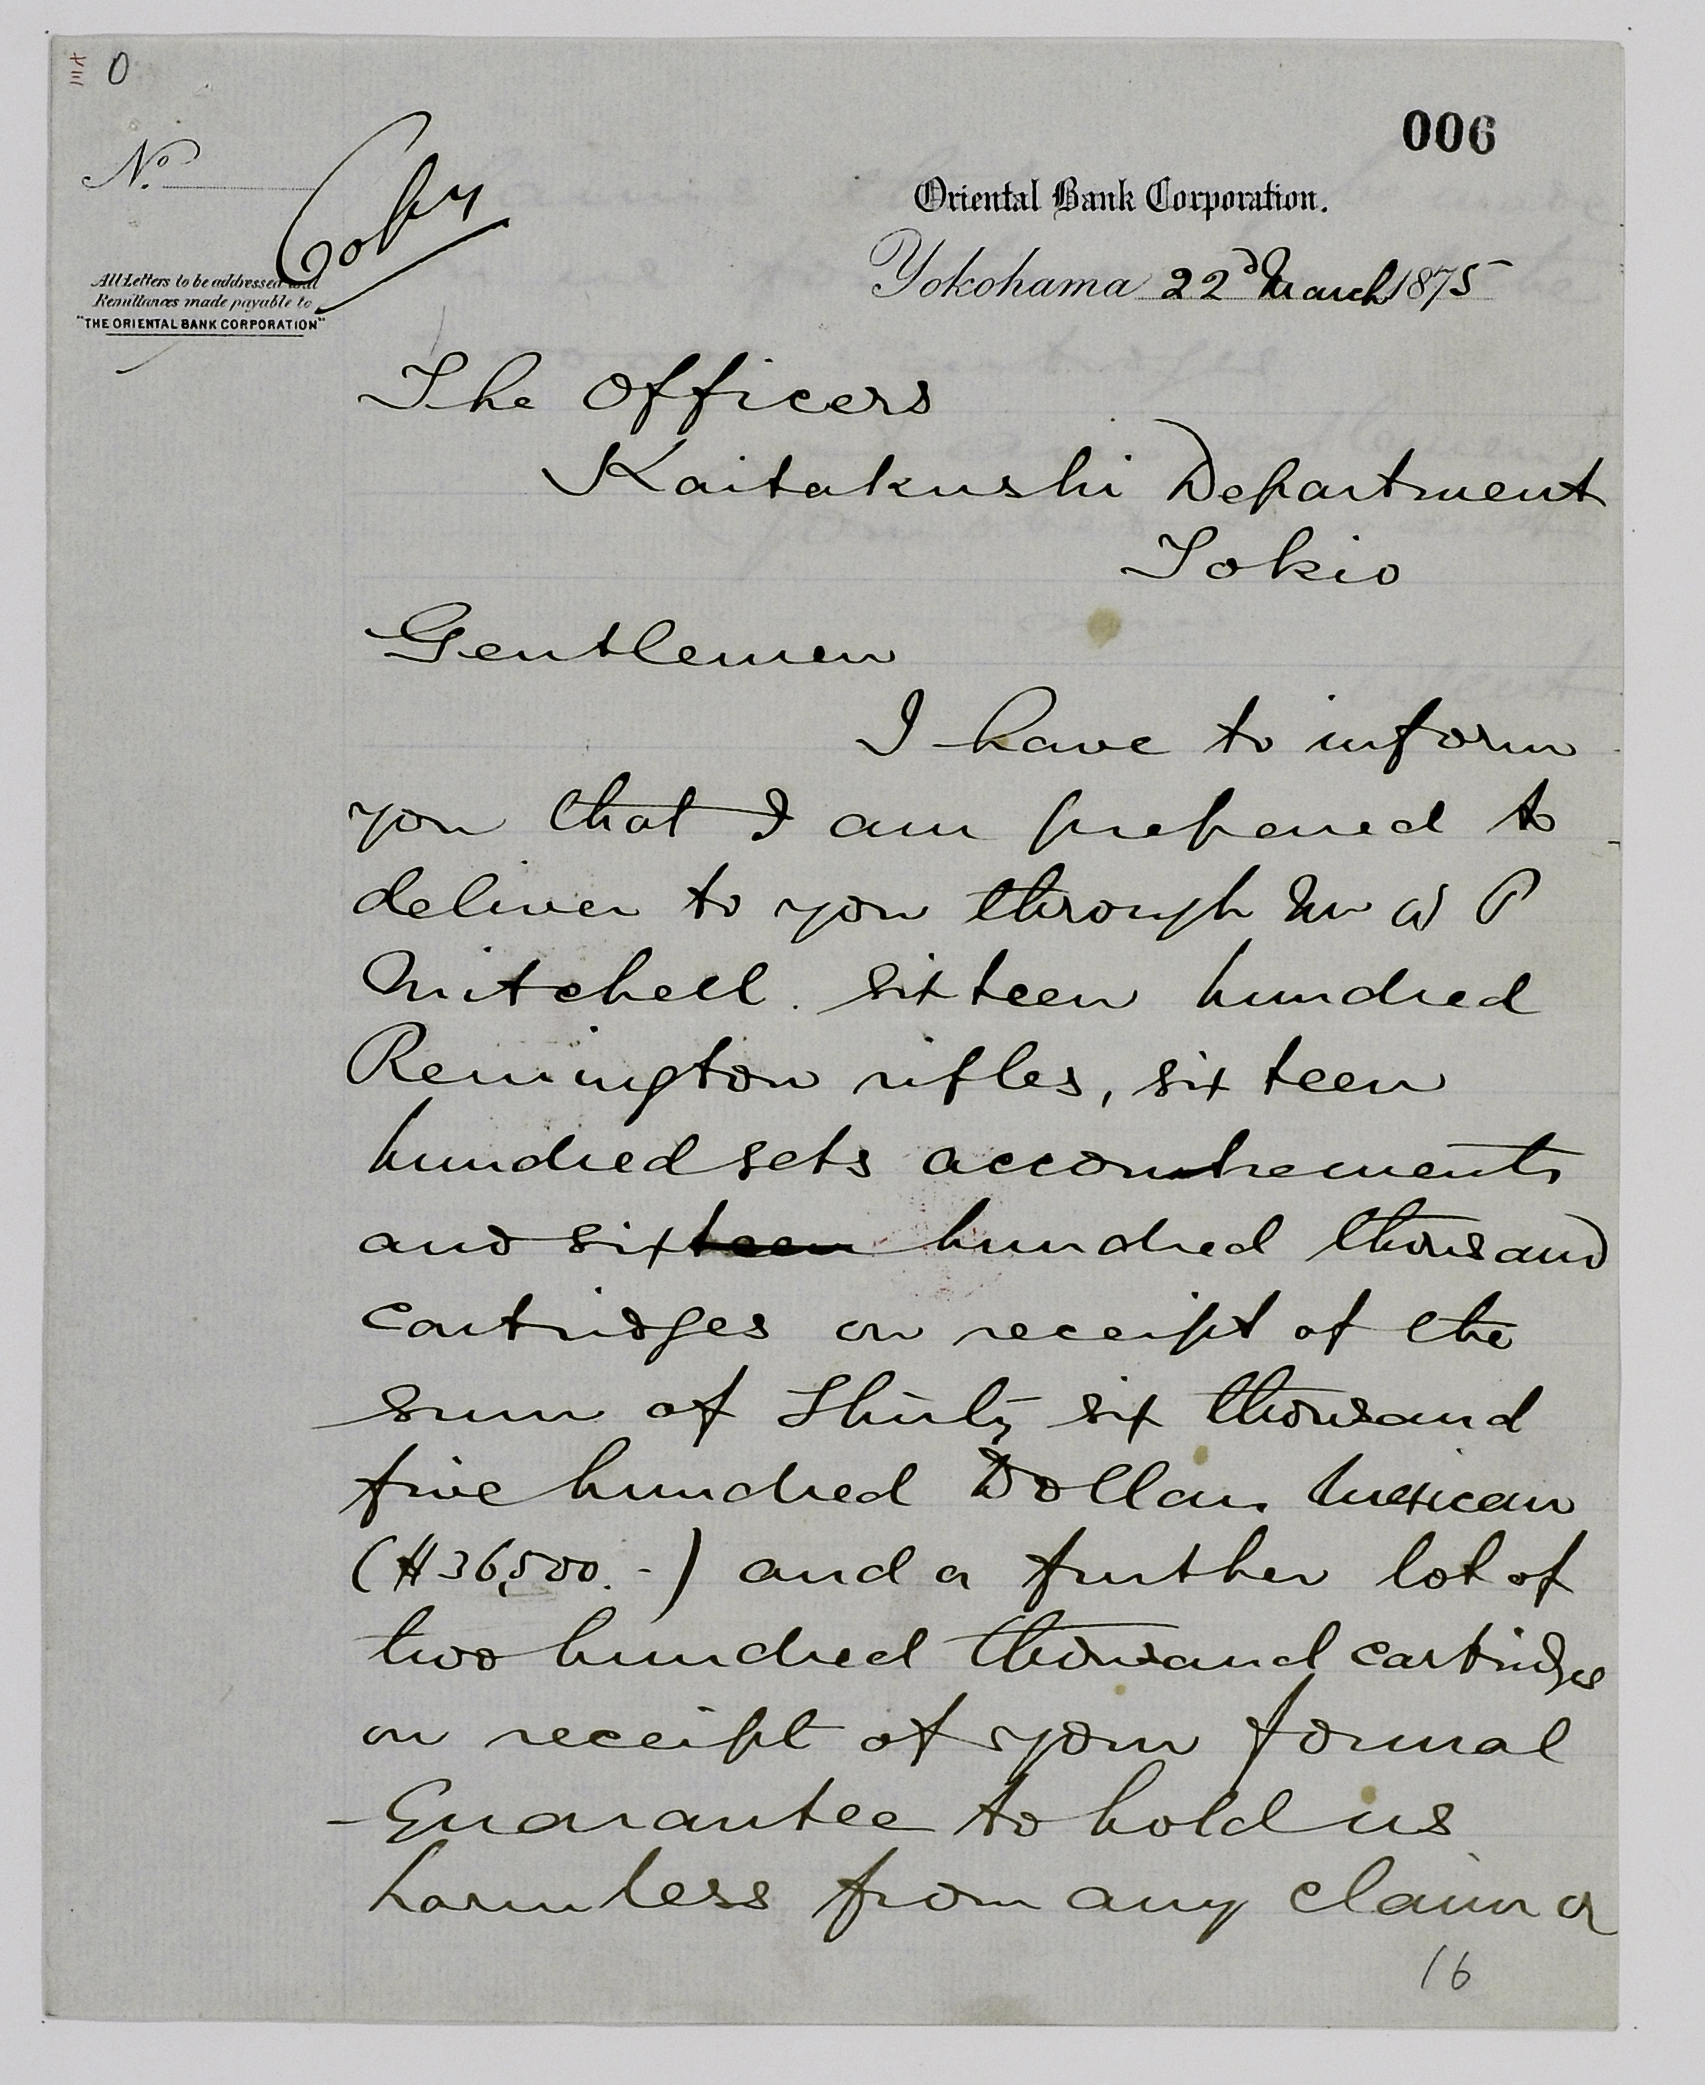 0
006
No.
Copy
Oriental Bank Corporation.
Yokohama 22d March 1875
All Letters to be addressed and
Remittances made payable to
"THE ORIENTAL BANK CORPORATION"
The Officers
Kaitakushi Department
Tokio
Gentlemen
I have to inform
you that I am prepared to
deliver to you through Mr W P
Mitchell. sixteen hundred
Remington rifles, sixteen
hundred sets accoutrements
and sixteen hundred thousand
cartridges on receipt of the
sum of Thirty six thousand
five hundred Dollars Mexican
($36,500.-) and a further lot of
two hundred thousand cartridges
on receipt of your formal
Guarantee to hold us
harmless from any claim or
16